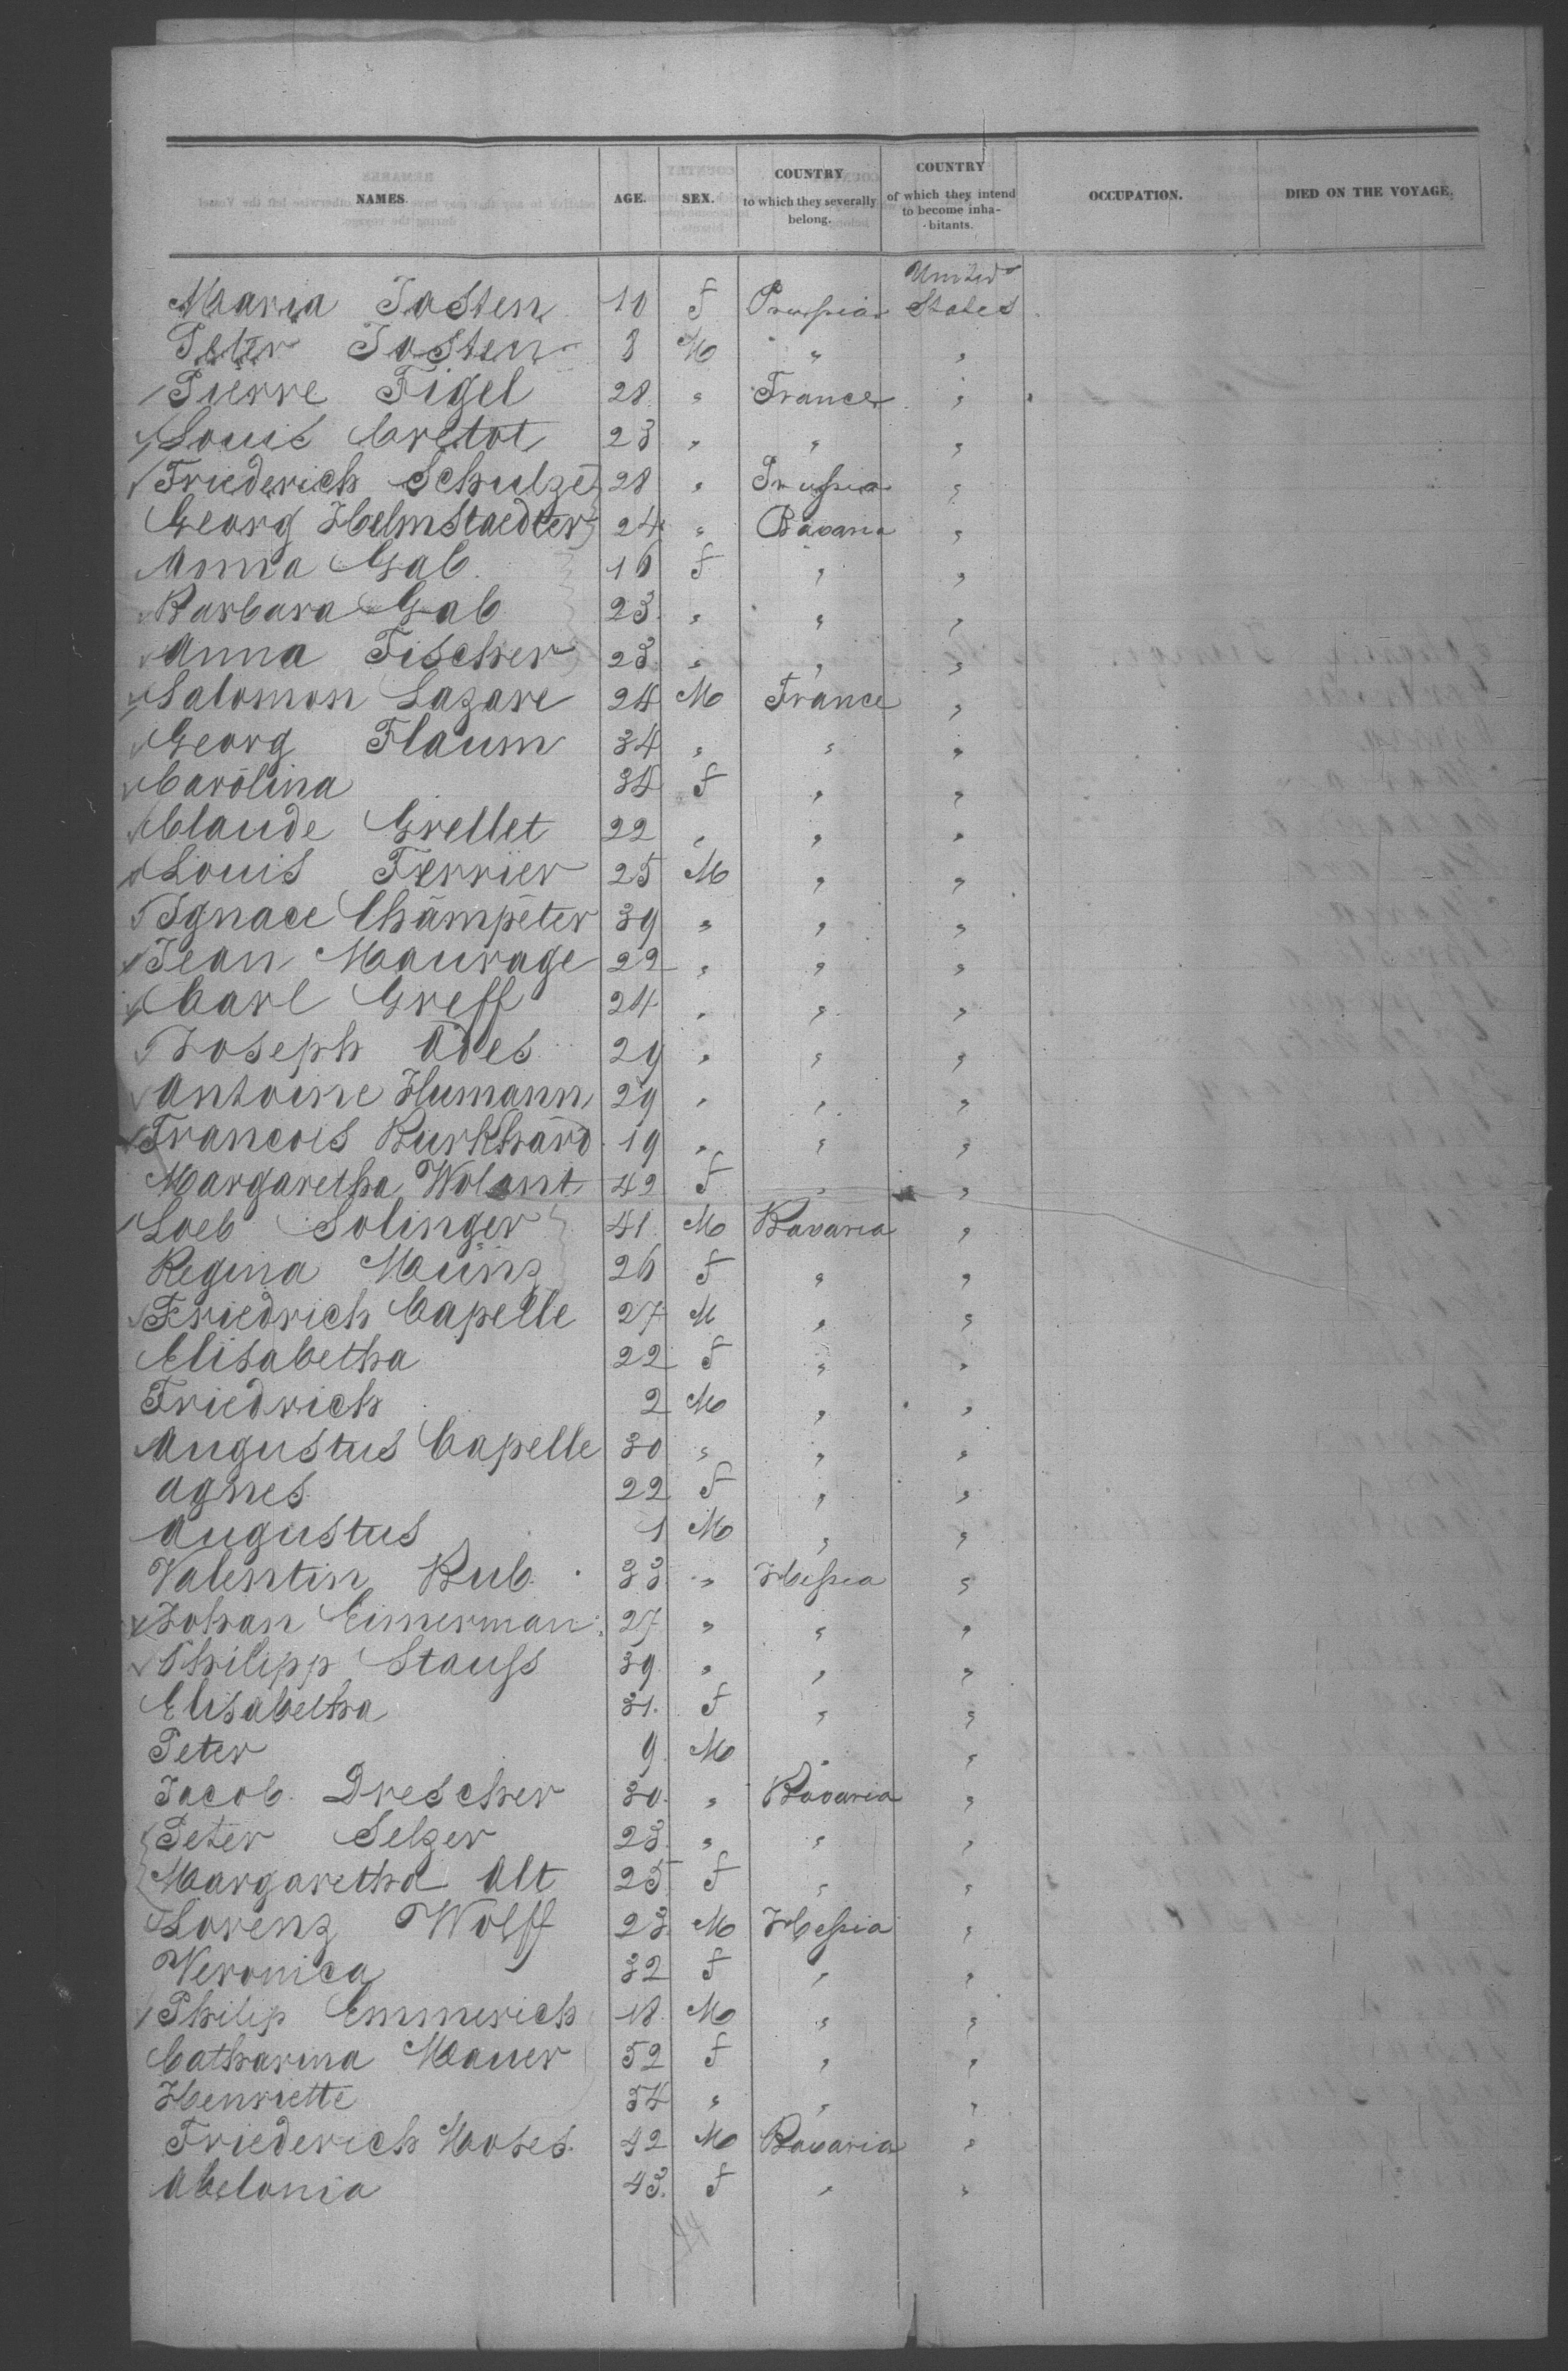 NAMES. AGE. SEX. COUNTRY to which they severally belong. COUNTRY of which they intend to become inhabitants. OCCUPATION. DIED ON THE VOYAGE.
United
Maria Josten 10 F Prussia States
Peter Josten 8 M " "
Pierre Figel 28 " France "
Louis Cretot 23 " " "
Friederich Schulze 28 " Prussia "
Georg Helmstaedter 24 " Bavaria "
Anna Gab 16 F " "
Barbara Gab 23 " " "
Anna Fischer 23 " " "
Salomon Lazare 24 M France "
Georg Flaum 34 " " "
Carolina 34 F " "
Claude Grellet 22 " " "
Louis Ferrier 25 M " "
Ignace Champeter 39 " " "
Jean Maurage 22 " " "
Carl Greff 24 " " "
Joseph Ades 29 " " "
Antoine Humann 29 " " "
Francois Burkhard 19 " " "
Margaretha Wolant 42 F " "
Loeb Solinger 41 M Bavaria "
Regina Münz 26 F " "
Friedrich Capelle 27 M " "
Elisabetha 22 F " "
Friedrich 2 M " "
Augustus Capelle 30 " " "
Agnes 22 F " "
Augustus 1 M " "
Valentin Bub 33 " Hessia "
Johan Eimerman 27 " " "
Philipp Stauss 39 " " "
Elisabetha 31 F " "
Peter 9 M " "
Jacob Drescher 30 " Bavaria "
Peter Selzer 23 " " "
Margaretha Alt 25 F " "
Lorenz Wolff 23 M Hessia "
Veronica 32 F " "
Philip Emmerich 18 M " "
Catharina Mauer 52 F " "
Henriette 54 " " "
Friederich Moses 42 M Bavaria "
Abelonia 43 F " "